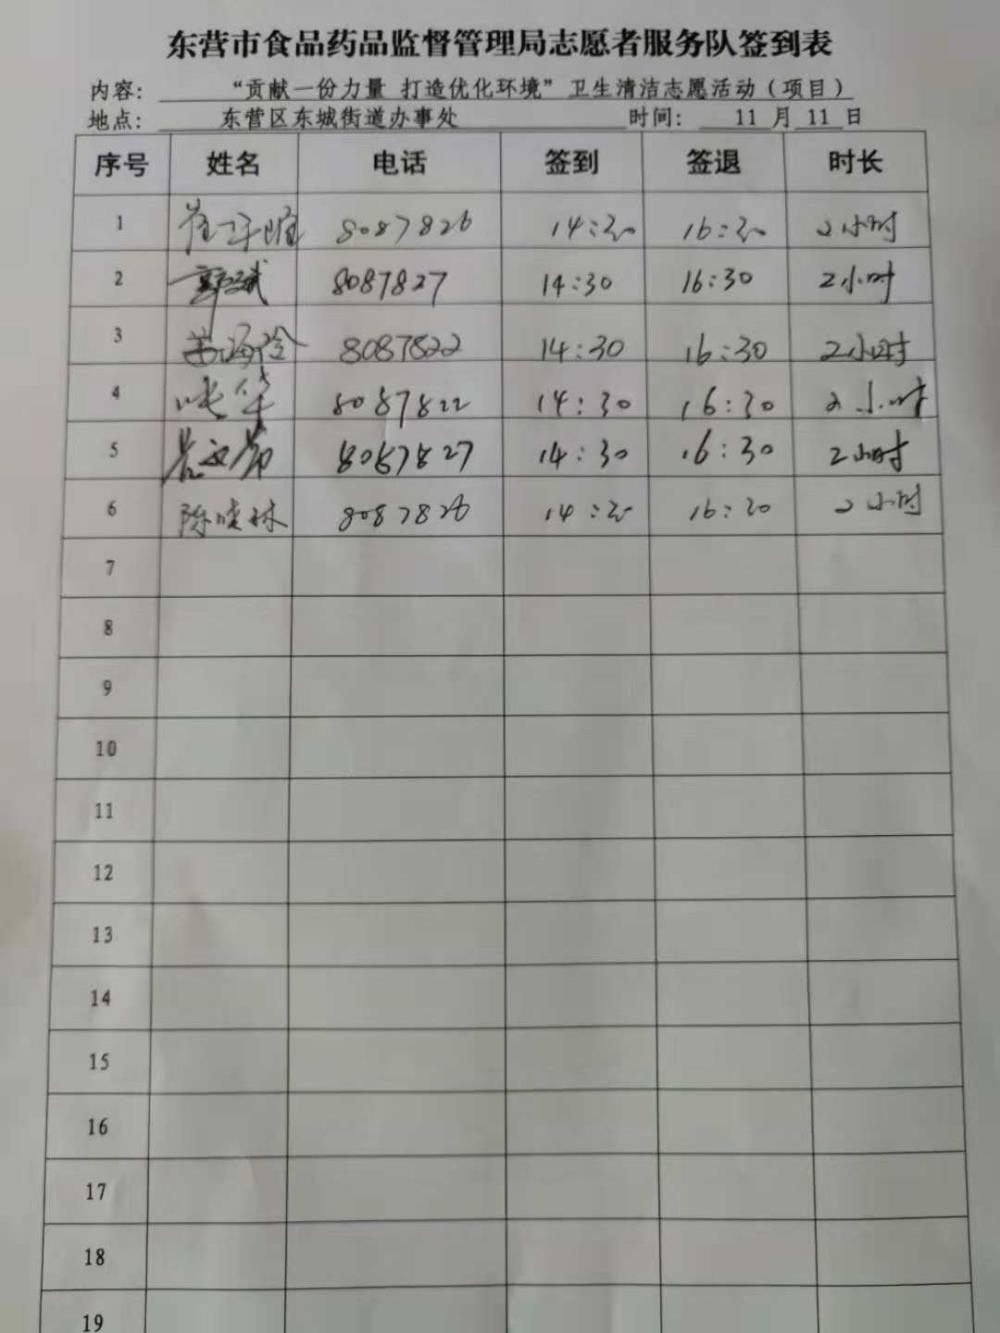 东营市食品药品监督管理局志愿者服务队签到表
内容: “贡献一份力量 打造优化环境”卫生清洁志愿活动(项目)
地点: 东营区东城街道办事处 时间: 11 月 11 日
序号 姓名 电话 签到 签退 时长
1 8087826 14:30 16:30 2小时
2 8087827 14:30 16:30 2小时
3 8087822 14:30 16:30 2小时
4 张华 8087822 14:30 16:30 2小时
5 8087827 14:30 16:30 2小时
6 陈晓林 8087826 14:30 16:30 2小时
7
8
9
10
11
12
13
14
15
16
17
18
19